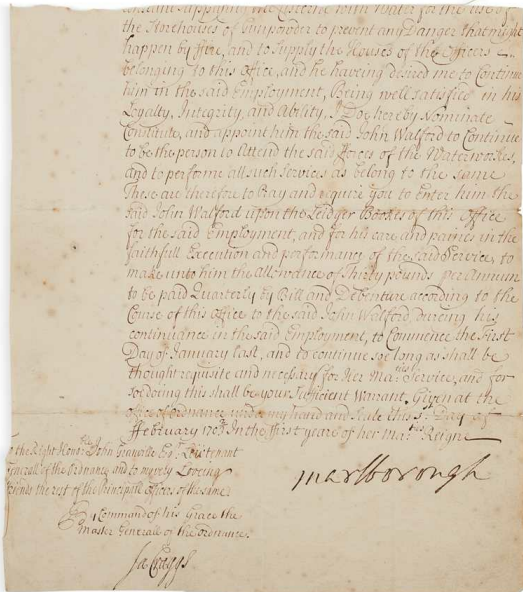 Supplying the Greene with Water for the use of
the Storehouses of Gunpowder to prevent any Danger that might
happen by ffire, and to Supply the Houses of the Officers
belonging to this Office, and he haveing desired me to Continue
him in the said Employment, Being well Satisfied in his
Loyalty, Integrity, and Ability, I Doe hereby Nominate
Constitute, and appoint him the said John Walford to Continue
to be the person to Attend the said fforces of the Waterworkes,
and to performe all such Services as belong to the same
These are therefore to Pray and require you to Enter him the
said John Walford upon the Leidger Bookes of this Office
for the said Employment, and for his care and paines in the
faithfull Execution and performance of the said Service, to
make unto him the Allowance of Thirty pounds per Annum
to be paid Quarterly by Bill and Debenture according to the
Course of this Office to the said John Walford, dureing his
continuance in the said Employment, to Commence the First
Day of January last, and to continue soe long as shall be
thought requisite and necessary for Her Ma:tis Service, and for
soe doing this shall be your Sufficient Warrant, Given at the
Office of Ordnance under my hand and Seale this Day of
ffebruary 170 In the ffirst yeare of her Ma:tis Reigne
marlborough
the Right Hon:ble John Granville Esq:r Lieutenant
Generall of the Ordnance, and to my very Loveing
ffriends the rest of the Principall Officers of the same
By Command of his Grace the
Master Generall of the Ordnance.
Ja Craggs